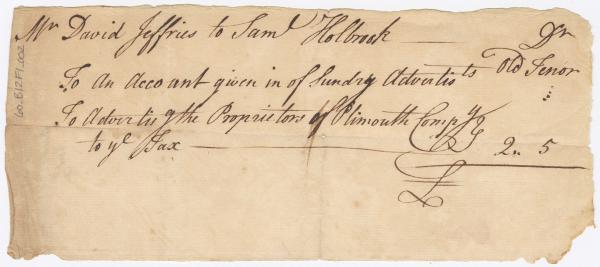 Mr David Jeffries to Saml Holbrook — Dr
Old Tenor
To An Account given in of Sundry Advertists
To Advertisg the Proprietors of Plimouth Compy
to ye Tax — £ 2 „ 5
60-512F1_002